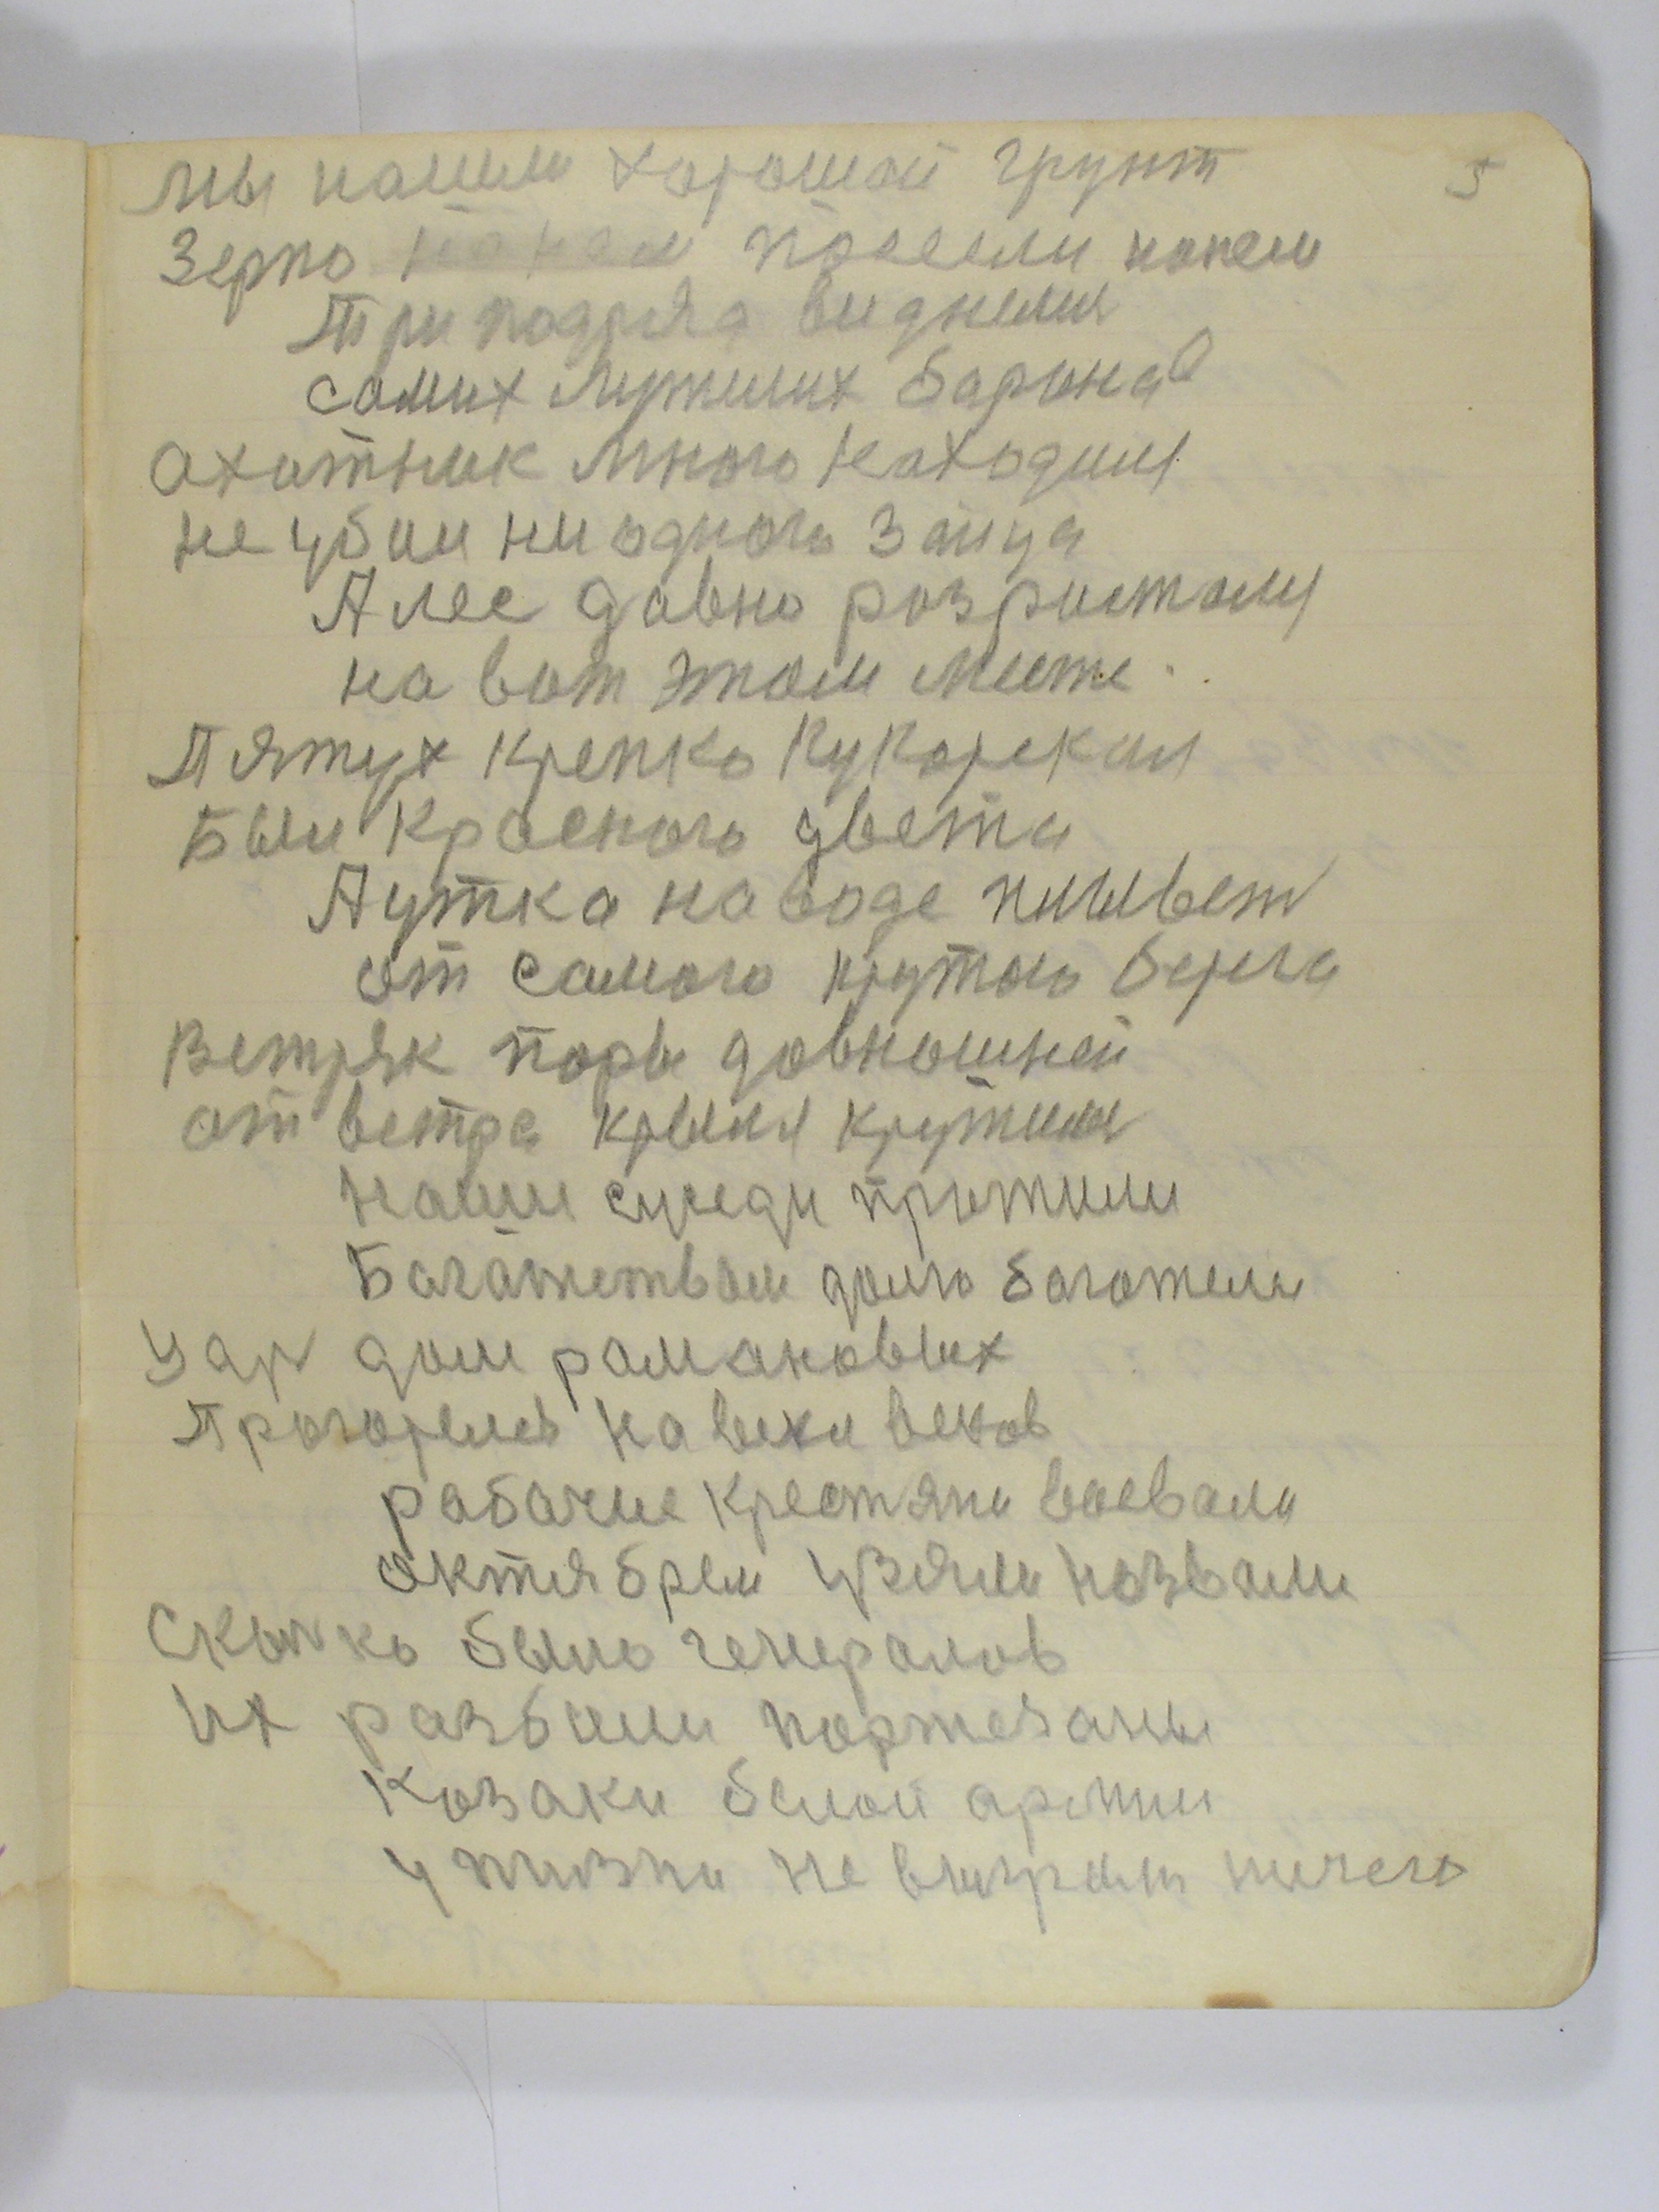 5
мы нашли хорошай грунт
Зерно посеели нанем
Три подряд виднелся
самих лутших баранав
Ахотник много находил
не убил ни одного зайца
А лес давно розростался
на вот этом месте
Пятух крепко кукарекал
Был красного цвета
А утка на воде плывет
от самого крутого берега
Ветряк поры довношней
от ветра крыля крутил
Наши суседи прожили
Багатством долго богатели
Цар дом романовых
Прогорел на веки веков
рабочие крестяни воевали
октябрем узяли назвали
Сколко было генералов
Их разбили партезаны
Козаки белой армии
у жизни не виграли ничего